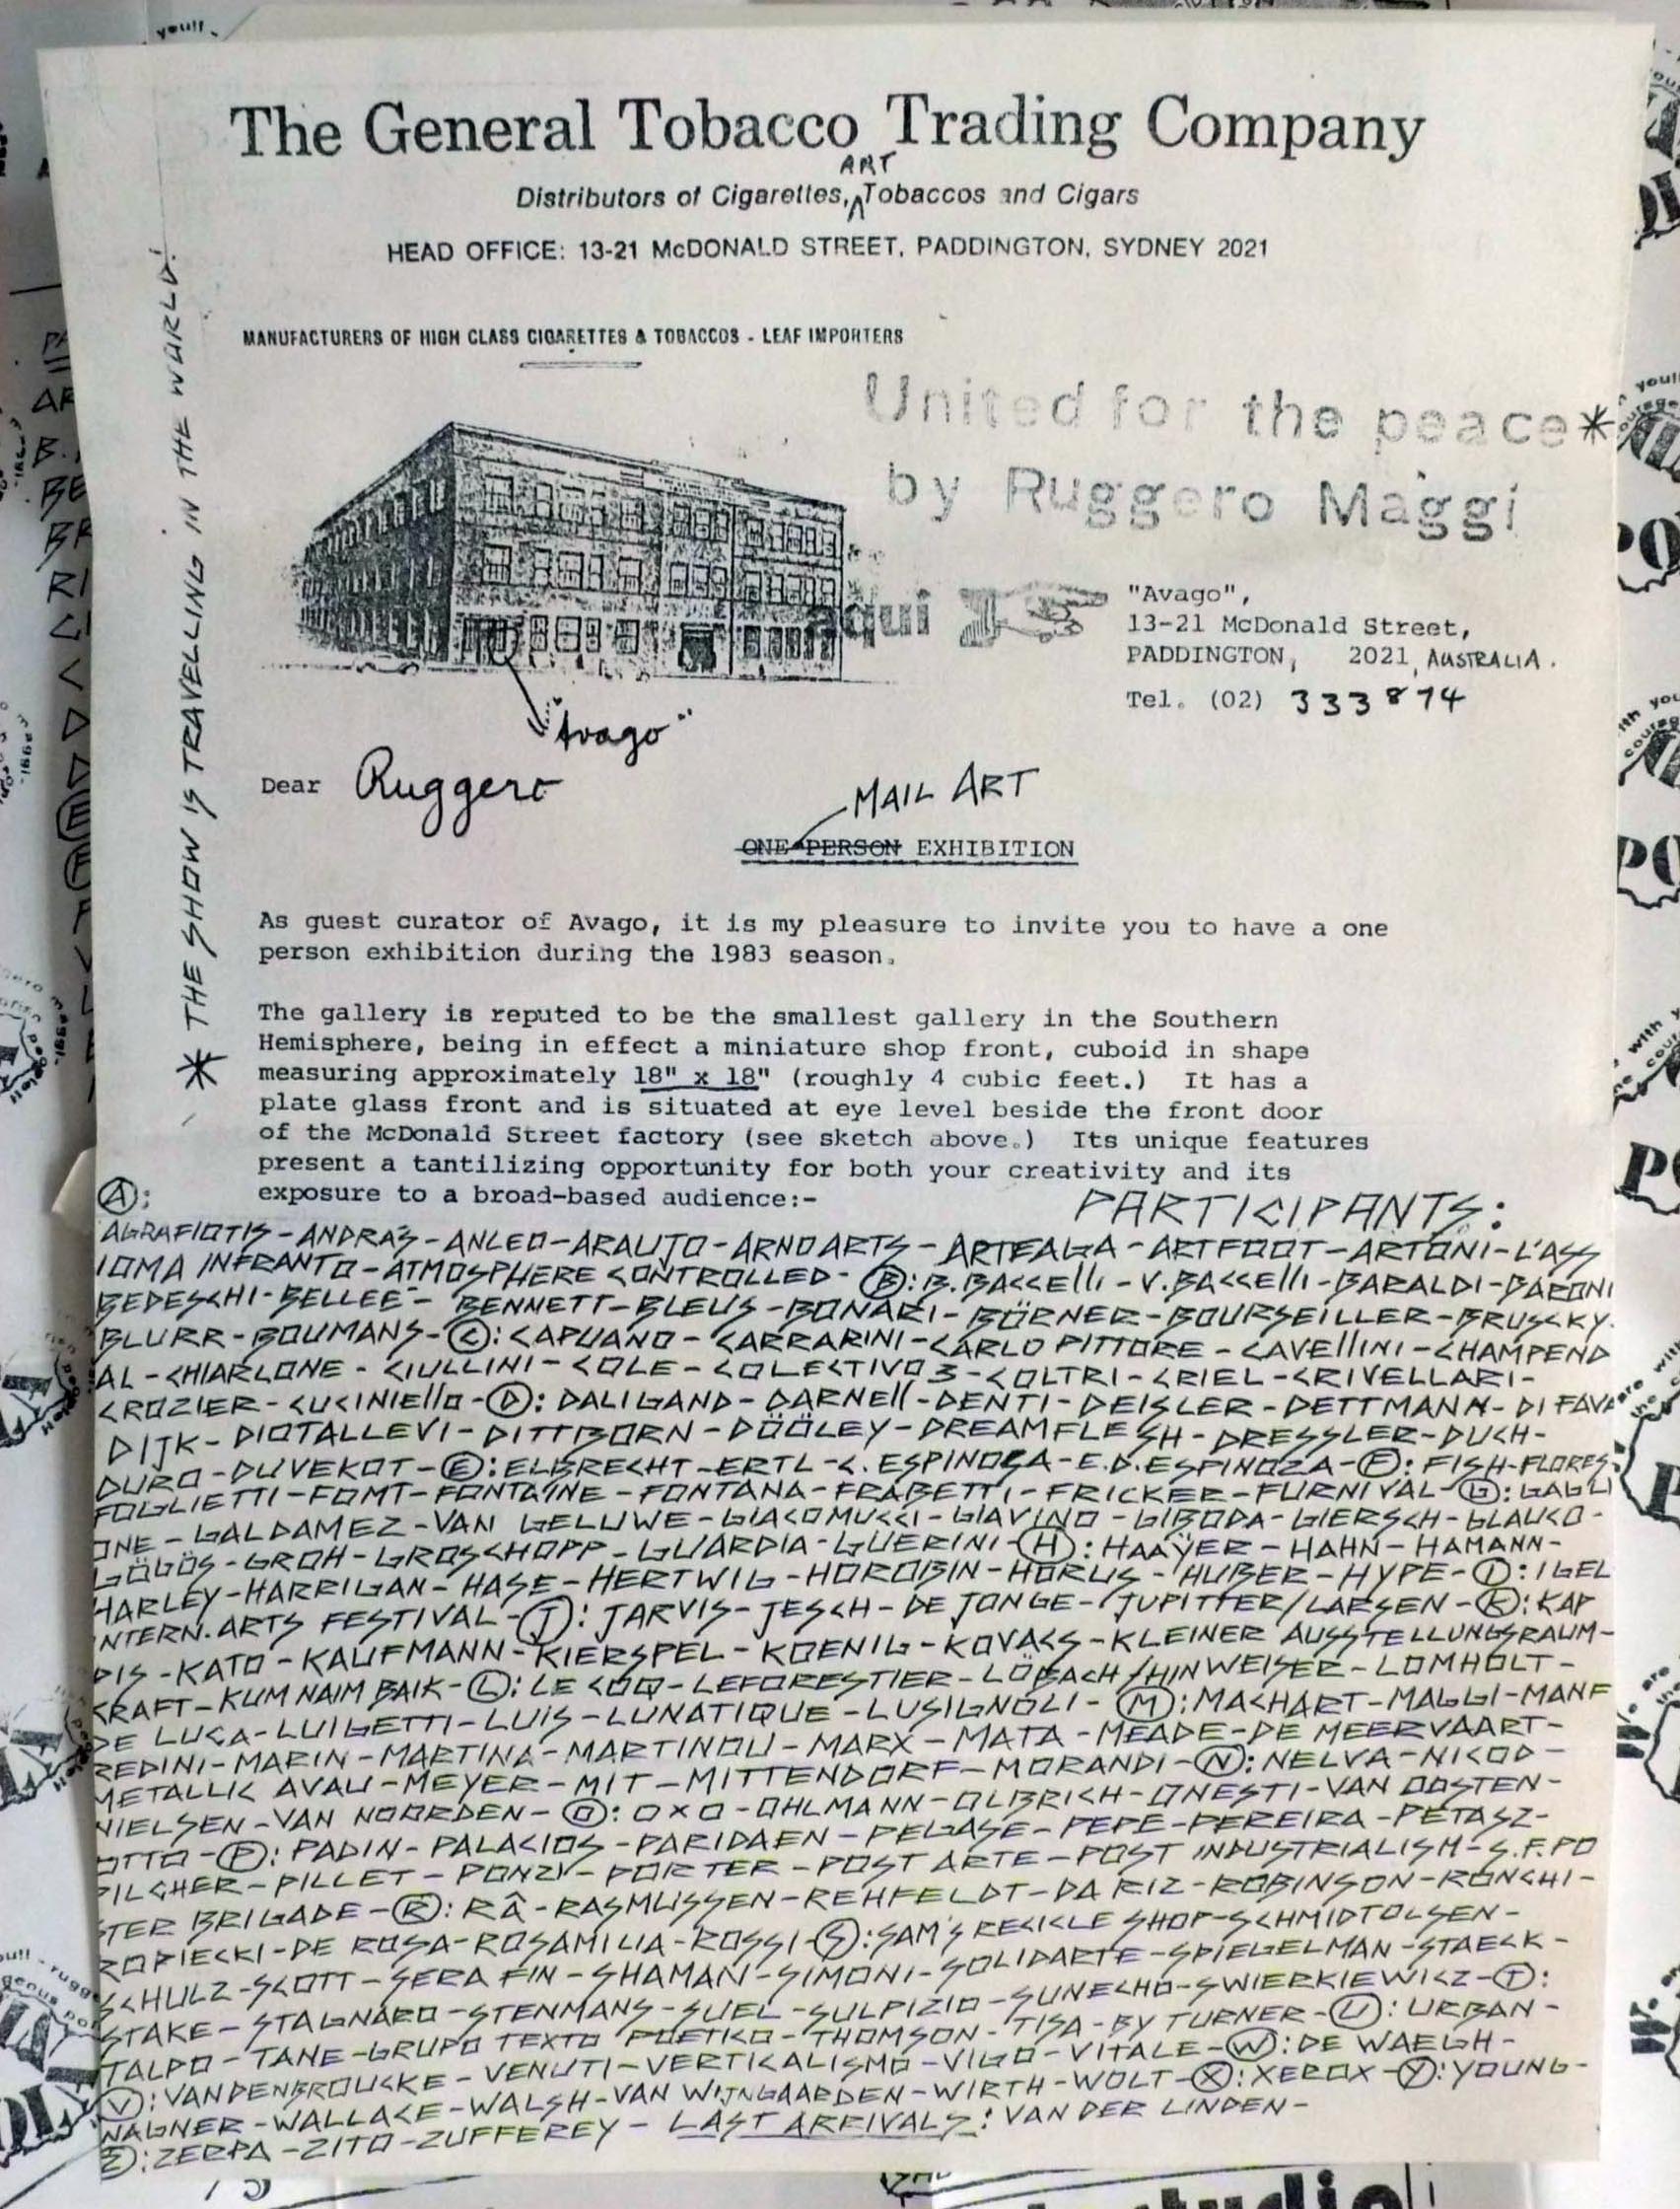 The General Tobacco Trading Company
ART
Distributors of Cigarettes, Tobaccos and Cigars
HEAD OFFICE: 13-21 McDONALD STREET, PADDINGTON, SYDNEY 2021
MANUFACTURERS OF HIGH CLASS CIGARETTES & TOBACCOS - LEAF IMPORTERS
United for the peace*
by Ruggero Maggi
aqui
"Avago",
13-21 McDonald Street,
PADDINGTON, 2021, AUSTRALIA.
Tel. (02) 333874
"Avago"
Dear Ruggero
MAIL ART
ONE PERSON EXHIBITION
As guest curator of Avago, it is my pleasure to invite you to have a one
person exhibition during the 1983 season.
The gallery is reputed to be the smallest gallery in the Southern
Hemisphere, being in effect a miniature shop front, cuboid in shape
measuring approximately 18" x 18" (roughly 4 cubic feet.) It has a
plate glass front and is situated at eye level beside the front door
of the McDonald Street factory (see sketch above.) Its unique features
present a tantilizing opportunity for both your creativity and its
exposure to a broad-based audience:-
* THE SHOW IS TRAVELLING IN THE WORLD!
PARTICIPANTS:
A:
AGRAFIOTIS - ANDRAŠ - ANLEO - ARAUJO - ARNO ARTS - ARTEAGA - ARTFOOT - ARTONI - L'ASS
IOMA INFRANTO - ATMOSPHERE CONTROLLED - B: B. BACCELLI - V. BACCELLI - BARALDI - BARONI
BEDESCHI - BELLEE - BENNETT - BLEUS - BONARI - BÖRNER - BOURSEILLER - BRUSCKY.
BLURR - BOUMANS - C: CAPUANO - CARRARINI - CARLO PITTORE - CAVELLINI - CHAMPEND
AL - CHIARLONE - CIULLINI - COLE - COLECTIVO 3 - COLTRI - CRIEL - CRIVELLARI -
CROZIER - CUCINIELLO - D: DALIGAND - DARNELL - DENTI - DEISLER - DETTMANN - DI FAVA
DIJK - DIOTALLEVI - DITTBORN - DÖÖLEY - DREAMFLESH - DRESSLER - DUCH -
DURO - DUVEKOT - E: ELBRECHT - ERTL - C. ESPINOSA - E.D. ESPINOZA - F: FISH - FLORES -
FOGLIETTI - FOMT - FONTAINE - FONTANA - FRABETTI - FRICKER - FURNIVAL - G: GAGLI
ONE - GALDAMEZ - VAN GELUWE - GIACOMUCCI - GIAVINO - GIBODA - GIERSCH - GLAUCO -
GÖGÖS - GROH - GROSCHOPP - GUARDIA - GUERINI - H: HAAŸER - HAHN - HAMANN -
HARLEY - HARRIGAN - HASE - HERTWIG - HOROBIN - HORUS - HUBER - HYPE - I: IGEL
INTERN. ARTS FESTIVAL - J: JARVIS - JESCH - DE JONGE - JUPITTER/LARSEN - K: KAP
DIS - KATO - KAUFMANN - KIERSPEL - KOENIG - KOVACS - KLEINER AUSSTELLUNGSRAUM -
KRAFT - KUM NAIM BAIK - L: LE COQ - LEFORESTIER - LÖBACH/HINWEISER - LOMHOLT -
DE LUCA - LUIGETTI - LUIS - LUNATIQUE - LUSIGNOLI - M: MACHART - MAGGI - MANF
REDINI - MARIN - MARTINA - MARTINOU - MARX - MATA - MEADE - DE MEERVAART -
METALLIC AVAU - MEYER - MIT - MITTENDORF - MORANDI - N: NELVA - NICOD -
NIELSEN - VAN NOORDEN - O: OXO - OHLMANN - OLBRICH - ONESTI - VAN OOSTEN -
OTTO - P: PADIN - PALACIOS - PARIDAEN - PEGASE - PEPE - PEREIRA - PETASZ -
PILCHER - PILLET - PONZI - PORTER - POST ARTE - POST INDUSTRIALISM - S.F. PO
STER BRIGADE - R: RÂ - RASMUSSEN - REHFELDT - DA RIZ - ROBINSON - RONCHI -
ROPIECKI - DE ROSA - ROSAMILIA - ROSSI - S: SAM'S RECICLE SHOP - SCHMIDTOLSEN -
SCHULZ - SCOTT - SERAFIN - SHAMAN - SIMONI - SOLIDARTE - SPIEGELMAN - STAECK -
STAKE - STAGNARO - STENMANS - SUEL - SULPIZIO - SUNECHO - SWIERKIEWICZ - T:
TALPO - TANE - GRUPO TEXTO POETICO - THOMSON - TISA - BY TURNER - U: URBAN -
V: VANDENBROUCKE - VENUTI - VERTICALISMO - VIGO - VITALE - W: DE WAEGH -
WAGNER - WALLACE - WALSH - VAN WIJNGAARDEN - WIRTH - WOLT - X: XEROX - Y: YOUNG -
Z: ZERPA - ZITO - ZUFFEREY - LAST ARRIVALS: VAN DER LINDEN -